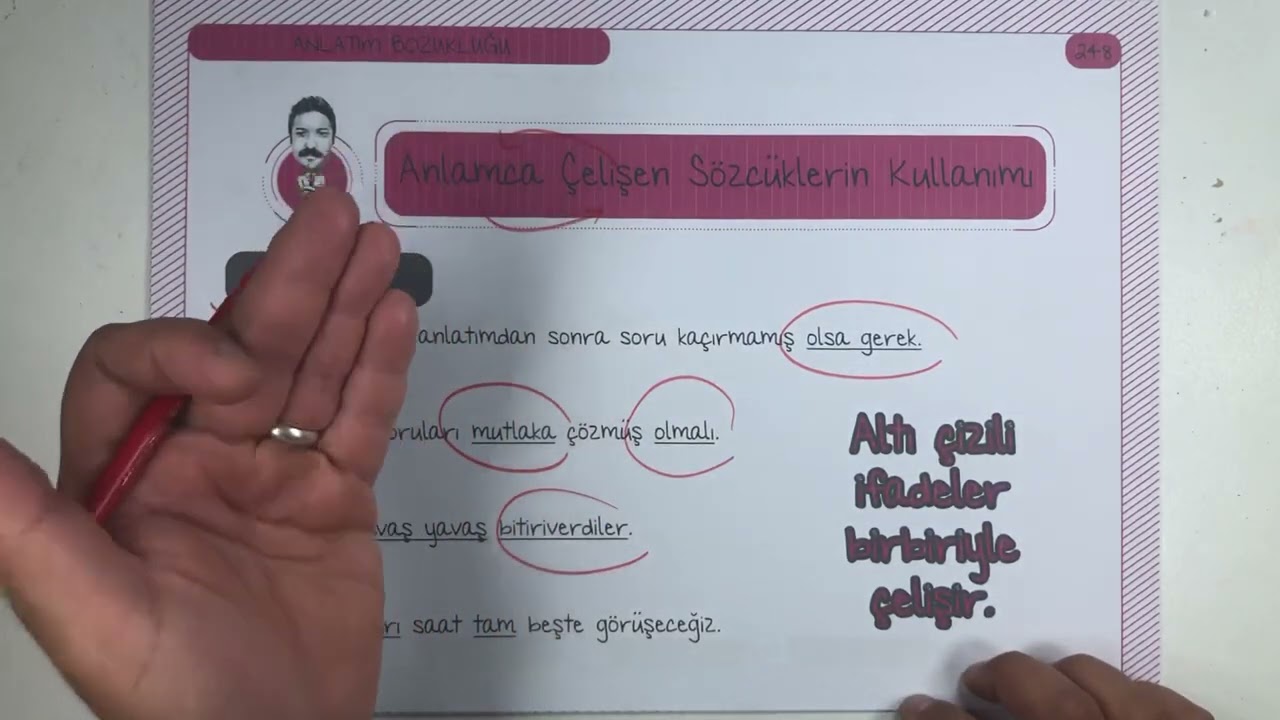 ANLATIM BOZUKLUĞU
24-8
Anlamca Çelişen Sözcüklerin Kullanımı
anlatımdan sonra soru kaçırmamış olsa gerek.
oruları mutlaka çözmüş olmalı.
vaş yavaş bitiriverdiler.
rı saat tam beşte görüşeceğiz.
Altı çizili
ifadeler
birbiriyle
çelişir.